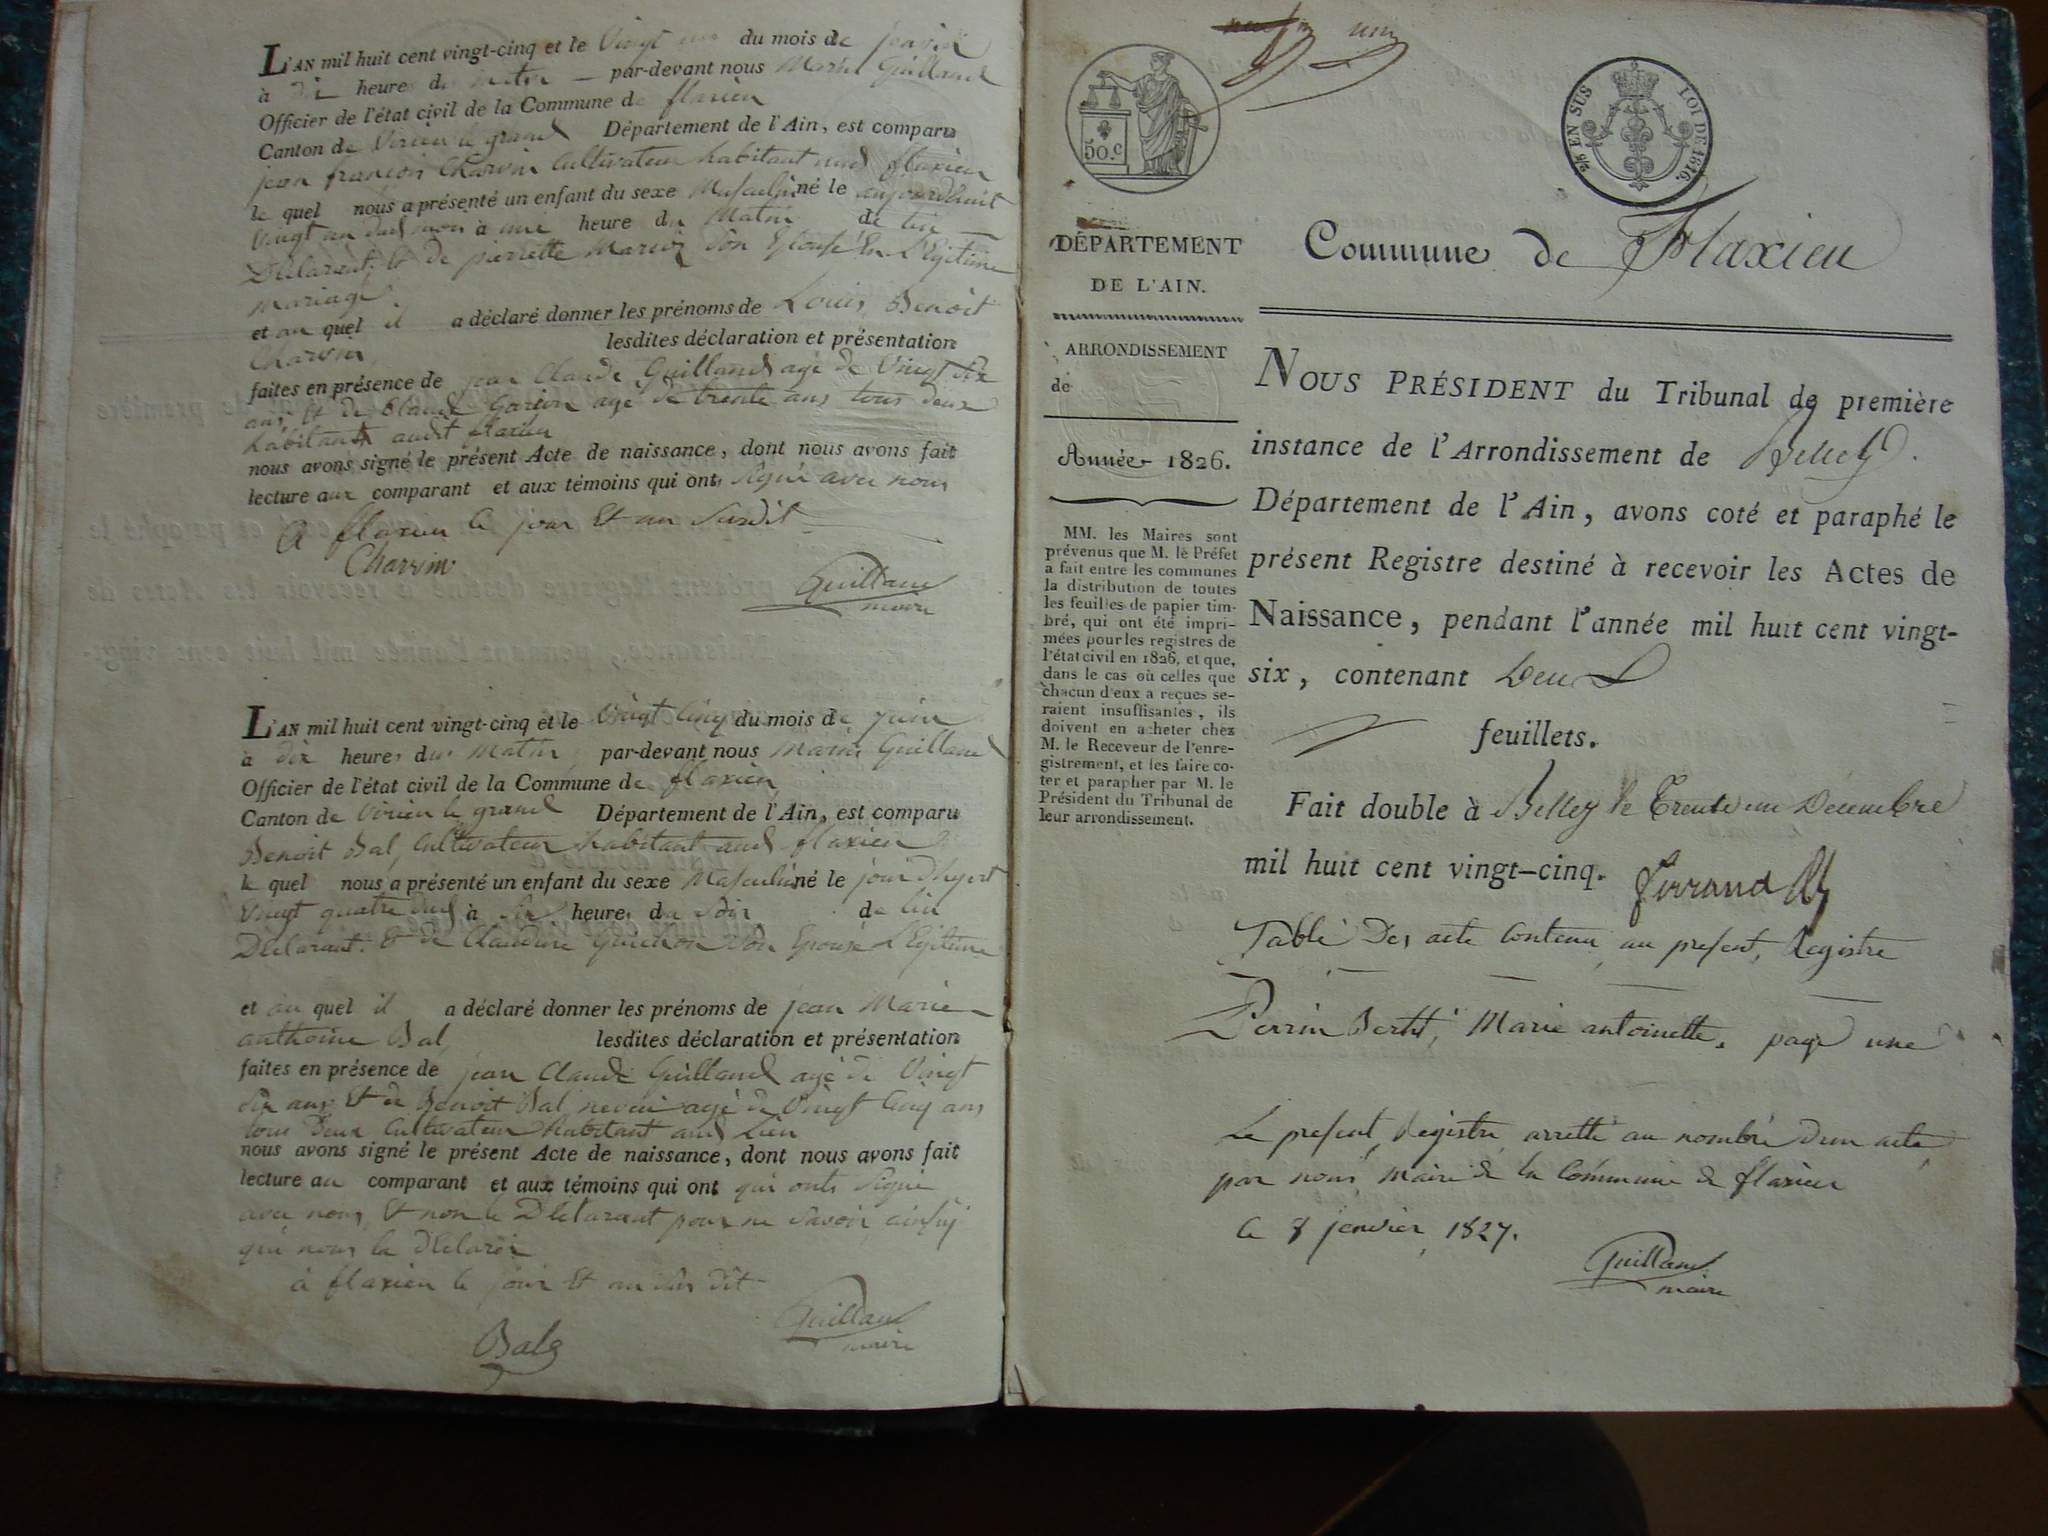 L'AN mil huit cent vingt-cinq et le Vingt un du mois de
à heure du par-devant nous Marin Guilland
Officier de l'état civil de la Commune de flaxieu
Canton de Virieu le grand Département de l'Ain, est comparu
jean françois Charvin Cultivateur habitant aud flaxieu
le quel nous a présenté un enfant du sexe Masculin né le aujourdhuit
Vingt un dud mois à une heure du Matin de lui
Déclarant. Et de pierrette Son Epouse En Légitime
Mariage
et au quel il a déclaré donner les prénoms de Louis Benoit
Charvin lesdites déclaration et présentation
faites en présence de jean Claude Guilland agé de Vingt Six
ans Et de Claude agé de trente ans tous deux
habitants audit flaxieu
nous avons signé le présent Acte de naissance, dont nous avons fait
lecture aux comparant et aux témoins qui ont Signé avec nous
A flaxieu le jour Et an Susdit
Charvin
Guilland
maire
L'AN mil huit cent vingt-cinq et le Vingt Cinq du mois de juin
à dix heures du Matin par-devant nous Marin Guilland
Officier de l'état civil de la Commune de flaxieu
Canton de Virieu le grand Département de l'Ain, est comparu
Benoit Bal, Cultivateur habitant aud flaxieu
le quel nous a présenté un enfant du sexe Masculin né le jour dhyert
Vingt quatre dud à Six heures du Soir de lui
Déclarant. Et de Claudine Guichon Son Epouse Légitime
et au quel il a déclaré donner les prénoms de jean Marie
anthoine Bal lesdites déclaration et présentation
faites en présence de jean Claude Guilland agé de Vingt
Six ans Et de Benoit Bal neveu agé de Vingt Cinq ans
tous Deux Cultivateur habitant aud Lieu
nous avons signé le présent Acte de naissance, dont nous avons fait
lecture au comparant et aux témoins qui ont qui onts Signé
avec nous Et non le Déclarant pour ne Savoir
qui nous la déclaré
à flaxieu le jour Et an Sus dit
Guilland
maire
Bal
un
50.c
2/5 EN SUS LOI DE 1816.
DÉPARTEMENT
DE L'AIN.
Commune de Flaxieu
ARRONDISSEMENT
de
Année 1826.
MM. les Maires sont
prévenus que M. le Préfet
a fait entre les communes
la distribution de toutes
les feuilles de papier tim-
bré, qui ont été impri-
mées pour les registres de
l'état civil en 1826, et que,
dans le cas où celles que
chacun d'eux a reçues se-
raient insuffisantes, ils
doivent en acheter chez
M. le Receveur de l'enre-
gistrement, et les faire co-
ter et parapher par M. le
Président du Tribunal de
leur arrondissement.
NOUS PRÉSIDENT du Tribunal de première
instance de l'Arrondissement de Belley.
Département de l'Ain, avons coté et paraphé le
présent Registre destiné à recevoir les Actes de
Naissance, pendant l'année mil huit cent vingt-
six, contenant Deux
feuillets.
Fait double à Belley le Trente un Décembre
mil huit cent vingt-cinq. Ferrand
Table Des acte Contenu au present Registre
Perrin Berthet, Marie antoinette. page une
Le present Registre arretté au nombre d'un acte
par nous maire de la Commune de flaxieu
le 8 jenvier 1827.
Guilland
maire